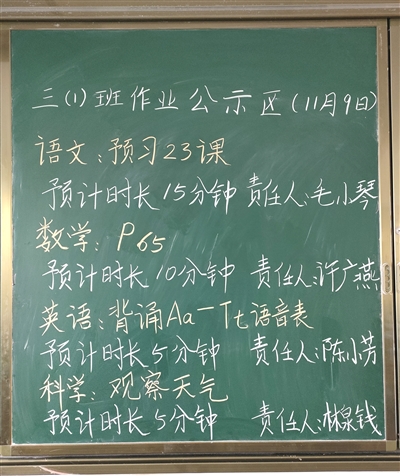 三(1)班作业公示区(11月9日)
语文:预习23课
预计时长15分钟 责任人:毛小琴
数学:P65
预计时长10分钟 责任人:许广燕
英语:背诵Aa-Tt语音表
预计时长5分钟 责任人:陈小芳
科学:观察天气
预计时长5分钟 责任人:林泉钱